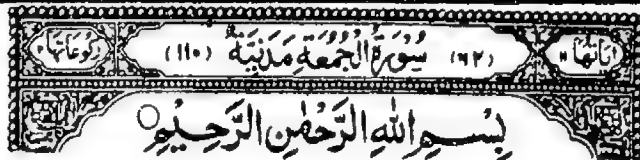 اٰيَاتُهَا ۱۱ (۶۲) سُوْرَةُ الْجُمُعَةِ مَدَنِيَّةٌ (۱۱۰) رُكُوْعَاتُهَا ۲
بِسْمِ اللّٰهِ الرَّحْمٰنِ الرَّحِيْمِ